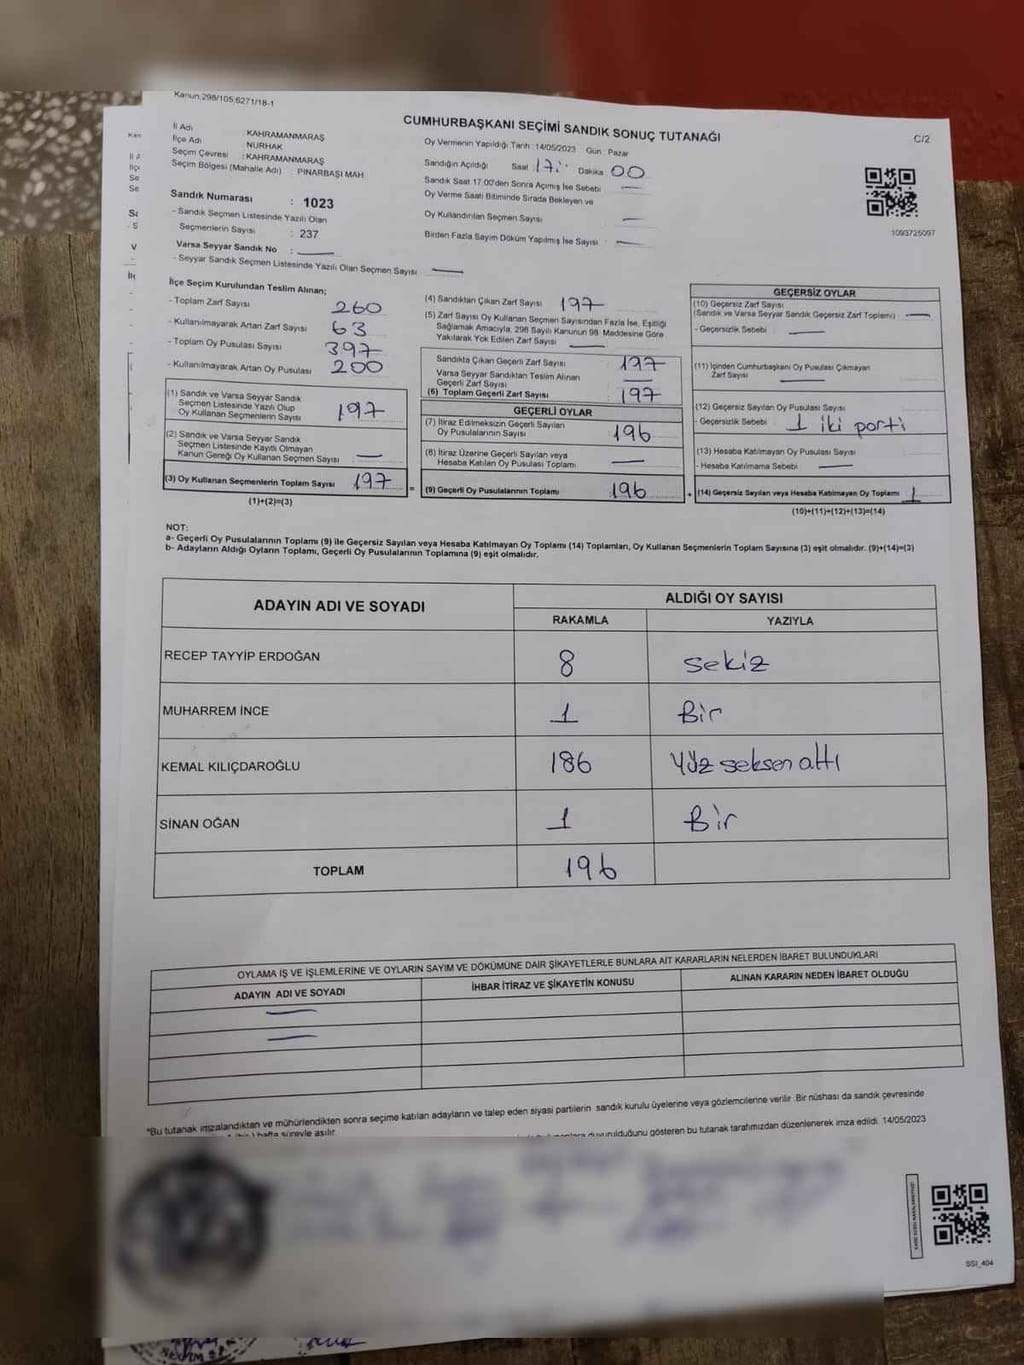 Kanun:298/105;6271/18-1
CUMHURBAŞKANI SEÇİMİ SANDIK SONUÇ TUTANAĞI
C/2
İl Adı KAHRAMANMARAŞ
İlçe Adı NURHAK
Seçim Çevresi : KAHRAMANMARAŞ
Seçim Bölgesi (Mahalle Adı) PINARBAŞI MAH
Sandık Numarası : 1023
- Sandık Seçmen Listesinde Yazılı Olan
Seçmenlerin Sayısı : 237
Varsa Seyyar Sandık No :
- Seyyar Sandık Seçmen Listesinde Yazılı Olan Seçmen Sayısı
Oy Vermenin Yapıldığı Tarih :14/05/2023 Gün : Pazar
Sandığın Açıldığı Saat 17: Dakika 00
Sandık Saat 17.00'den Sonra Açımış İse Sebebi
Oy Verme Saati Bitiminde Sırada Bekleyen ve
Oy Kullandırılan Seçmen Sayısı
Birden Fazla Sayım Döküm Yapılmış İse Sayısı :
1093725097
İlçe Seçim Kurulundan Teslim Alınan;
- Toplam Zarf Sayısı 260
- Kullanılmayarak Artan Zarf Sayısı 63
- Toplam Oy Pusulası Sayısı 397
- Kullanılmayarak Artan Oy Pusulası 200
(1) Sandık ve Varsa Seyyar Sandık
Seçmen Listesinde Yazılı Olup
Oy Kullanan Seçmenlerin Sayısı 197
(2) Sandık ve Varsa Seyyar Sandık
Seçmen Listesinde Kayıtlı Olmayan
Kanun Gereği Oy Kullanan Seçmen Sayısı
(3) Oy Kullanan Seçmenlerin Toplam Sayısı 197 =
(1)+(2)=(3)
(4) Sandıktan Çıkan Zarf Sayısı 197
(5) Zarf Sayısı Oy Kullanan Seçmen Sayısından Fazla İse, Eşitliği
Sağlamak Amacıyla, 298 Sayılı Kanunun 98. Maddesine Göre
Yakılarak Yok Edilen Zarf Sayısı
Sandıkta Çıkan Geçerli Zarf Sayısı 197
Varsa Seyyar Sandıktan Teslim Alınan
Geçerli Zarf Sayısı
(6) Toplam Geçerli Zarf Sayısı 197
GEÇERLİ OYLAR
(7) İtiraz Edilmeksizin Geçerli Sayılan
Oy Pusulalarının Sayısı 196
(8) İtiraz Üzerine Geçerli Sayılan veya
Hesaba Katılan Oy Pusulası Toplamı
(9) Geçerli Oy Pusulalarının Toplamı 196 +
GEÇERSİZ OYLAR
(10) Geçersiz Zarf Sayısı
(Sandık ve Varsa Seyyar Sandık Geçersiz Zarf Toplamı)
- Geçersizlik Sebebi
(11) İçinden Cumhurbaşkanı Oy Pusulası Çıkmayan
Zarf Sayısı
(12) Geçersiz Sayılan Oy Pusulası Sayısı
- Geçersizlik Sebebi 1 iki parti
(13) Hesaba Katılmayan Oy Pusulası Sayısı
- Hesaba Katılmama Sebebi
(14) Geçersiz Sayılan veya Hesaba Katılmayan Oy Toplamı 1
(10)+(11)+(12)+(13)=(14)
NOT:
a- Geçerli Oy Pusulalarının Toplamı (9) ile Geçersiz Sayılan veya Hesaba Katılmayan Oy Toplamı (14) Toplamları, Oy Kullanan Seçmenlerin Toplam Sayısına (3) eşit olmalıdır. (9)+(14)=(3)
b- Adayların Aldığı Oyların Toplamı, Geçerli Oy Pusulalarının Toplamına (9) eşit olmalıdır.
ADAYIN ADI VE SOYADI
ALDIĞI OY SAYISI
RAKAMLA YAZIYLA
RECEP TAYYİP ERDOĞAN 8 sekiz
MUHARREM İNCE 1 Bir
KEMAL KILIÇDAROĞLU 186 Yüz seksen altı
SİNAN OĞAN 1 Bir
TOPLAM 196
OYLAMA İŞ VE İŞLEMLERİNE VE OYLARIN SAYIM VE DÖKÜMÜNE DAİR ŞİKAYETLERLE BUNLARA AİT KARARLARIN NELERDEN İBARET BULUNDUKLARI
ADAYIN ADI VE SOYADI İHBAR İTİRAZ VE ŞİKAYETİN KONUSU ALINAN KARARIN NEDEN İBARET OLDUĞU
*Bu tutanak imzalandıktan ve mühürlendikten sonra seçime katılan adayların ve talep eden siyasi partilerin sandık kurulu üyelerine veya gözlemcilerine verilir. Bir nüshası da sandık çevresinde
hafta süreyle asılır. duyurulduğunu gösteren bu tutanak tarafımızdan düzenlenerek imza edildi. 14/05/2023
SSI_404